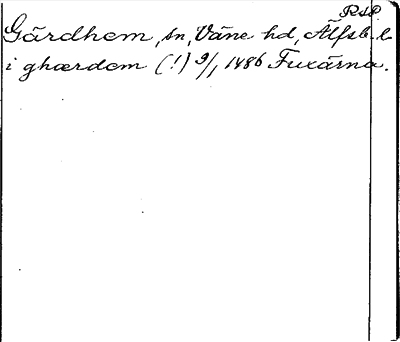 RSP.
Gärdhem, sn, Väne hd, Älfsb. l.
i ghærdom (!) 9/1 1486 Fuxärna.